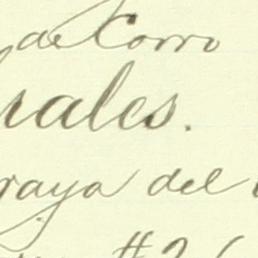 de Corro
rales.
raya del
#2